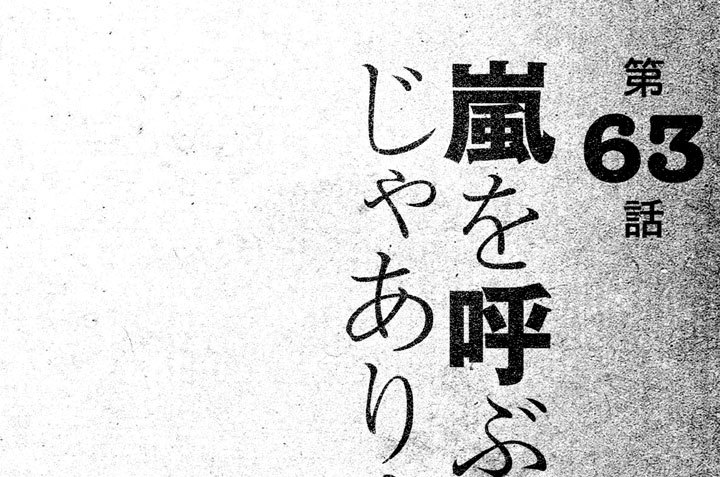 第63話
嵐を呼ぶ
じゃあり